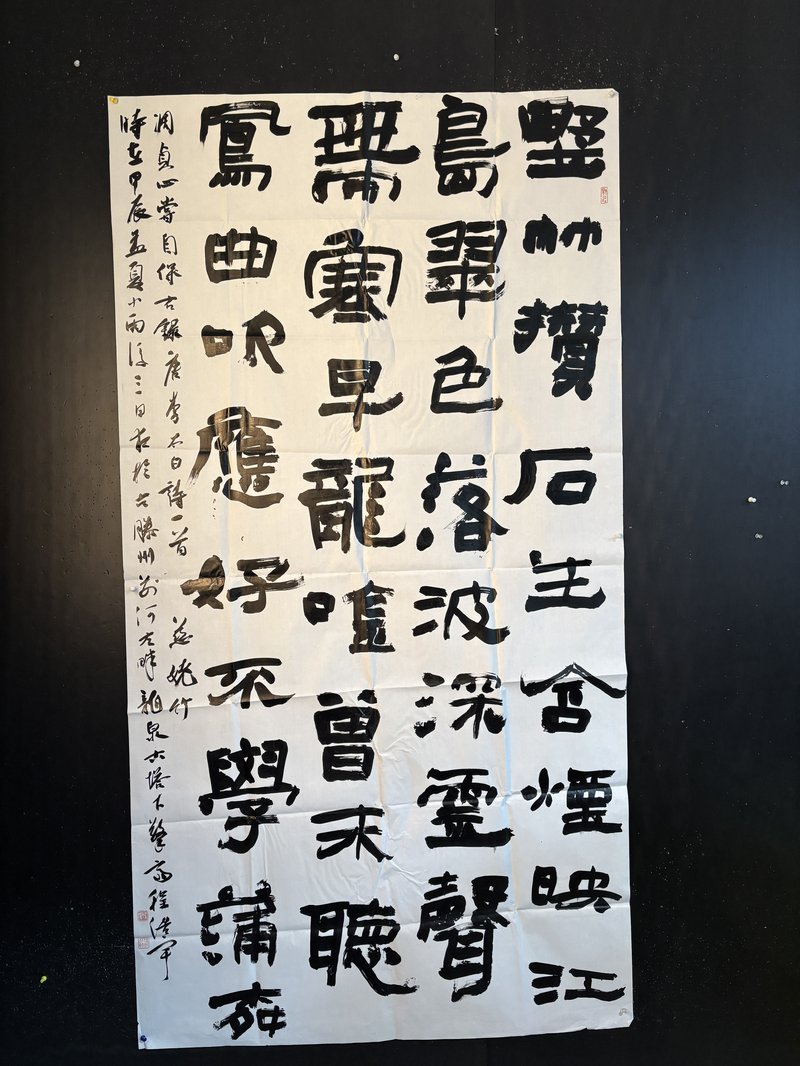 野竹攢石生含煙映江
島翠色落波深虛聲
帶寒早龍吟曾未聽
鳳曲吹應好不學蒲柳
凋貞心嘗自保右錄唐李太白詩一首 慈姥竹
時在甲辰孟夏小雨後三日於古滕州荊河左畔龍泉古塔下程浩軍